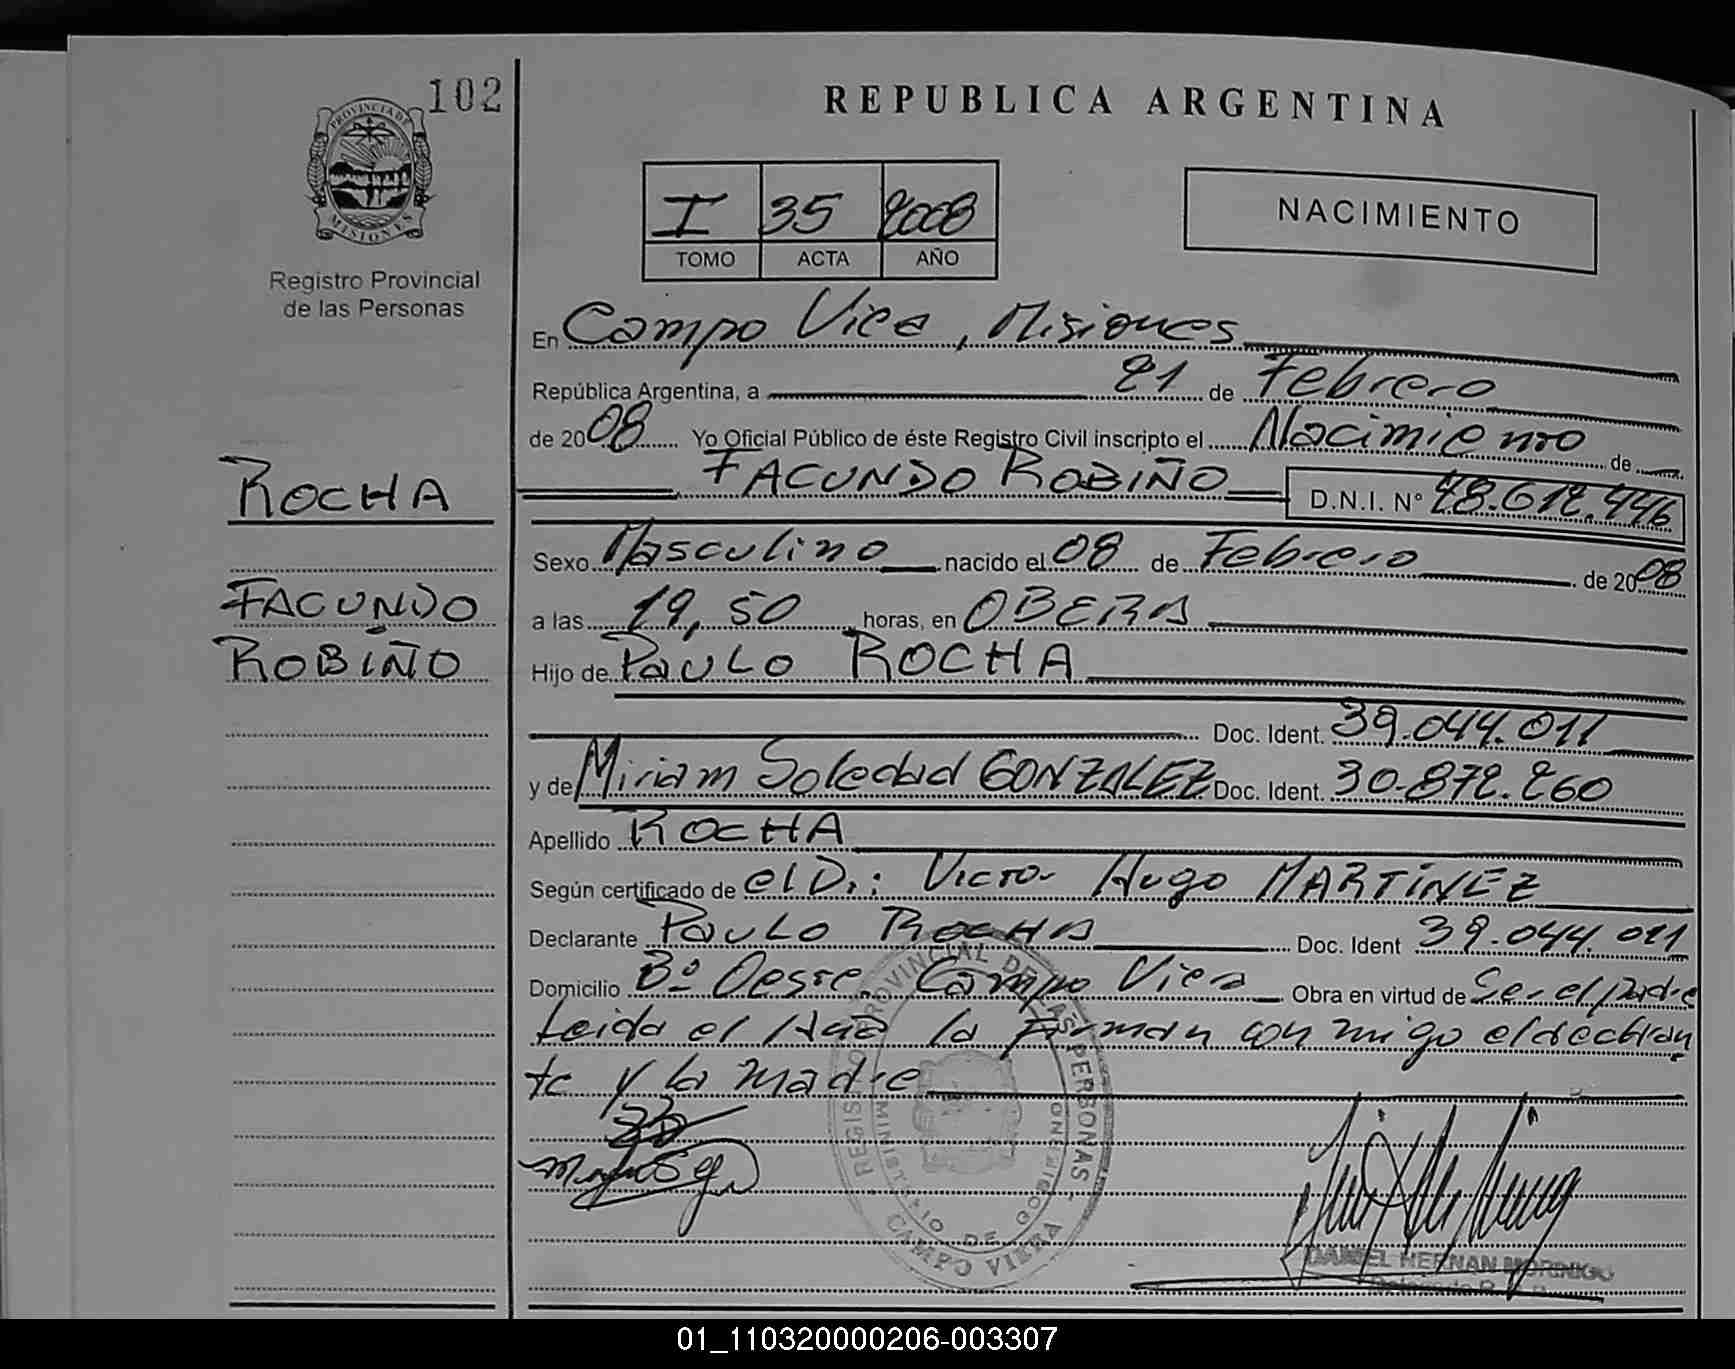 102
PROVINCIA DE
MISIONES
Registro Provincial
de las Personas
ROCHA
FACUNDO
ROBIÑO
REPUBLICA ARGENTINA
I 35 2008
TOMO ACTA AÑO
NACIMIENTO
En Campo Viera, Misiones
República Argentina, a 21 de Febrero
de 2008 Yo Oficial Público de éste Registro Civil inscripto el Nacimiento de
FACUNDO ROBIÑO D.N.I. N° 48.612.446
Sexo Masculino nacido el 08 de Febrero de 2008
a las 19,50 horas, en OBERA
Hijo de Paulo ROCHA
Doc. Ident. 39.044.011
y de Miriam Soledad GONZALEZ Doc. Ident. 30.872.260
Apellido ROCHA
Según certificado de el Dr: Victor Hugo MARTÍNEZ
Declarante Paulo ROCHA Doc. Ident 39.044.011
Domicilio Bº Oeste, Campo Viera Obra en virtud de Ser el padre
Leida el Acta la Firman con migo el declaran
te y la madre
REGISTRO PROVINCIAL DE LAS PERSONAS -
MINISTERIO DE GOBIERNO
CAMPO VIERA
DANIEL HERNAN MORINIGO
01_110320000206-003307